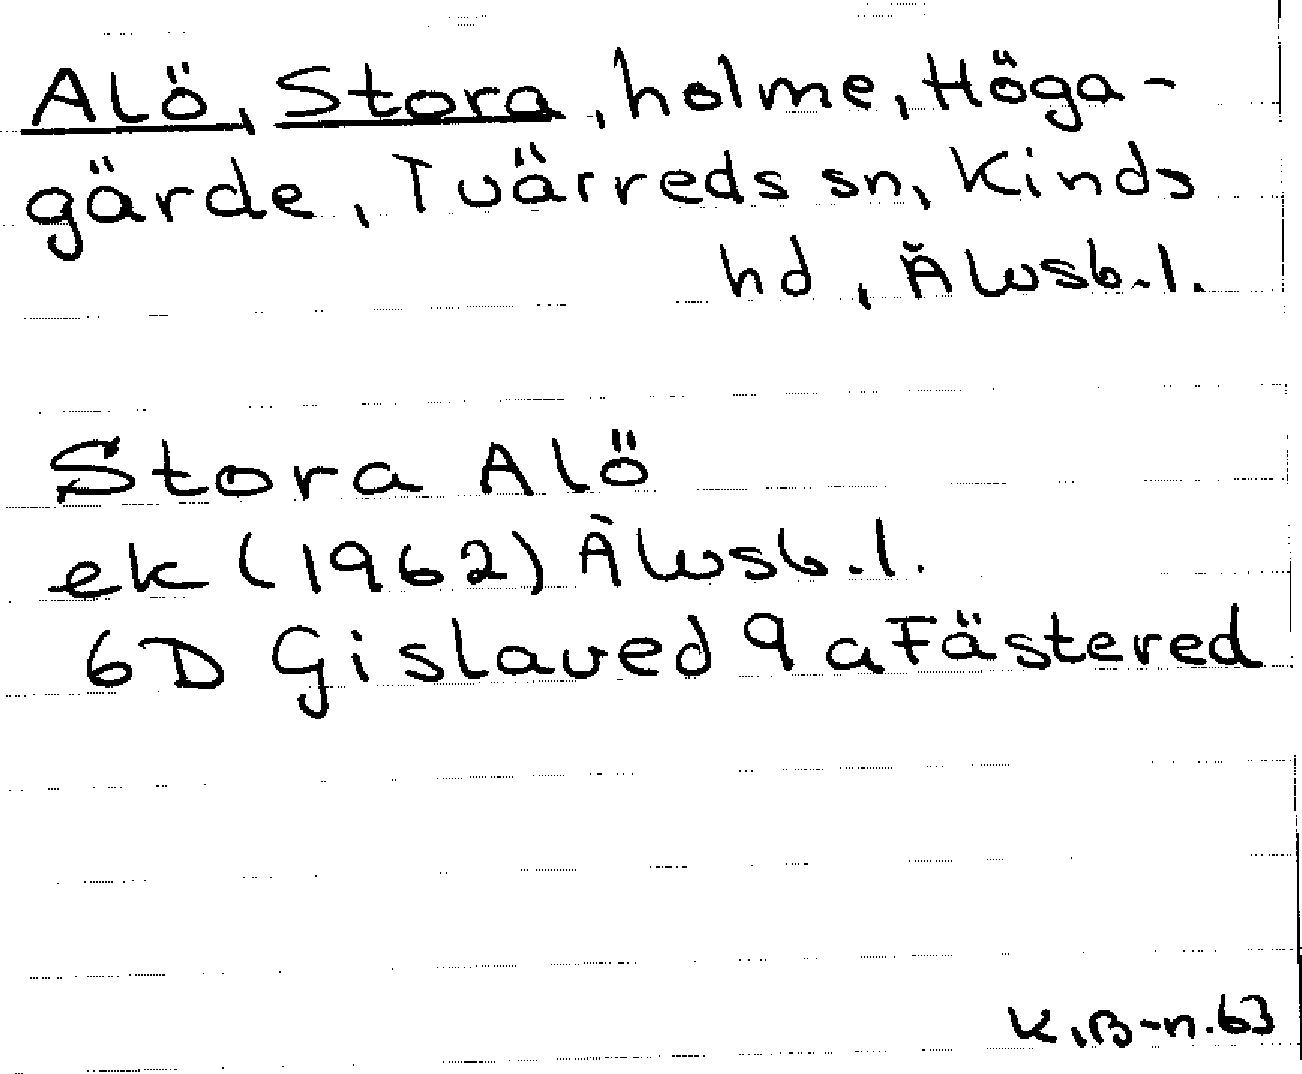 Alö, Stora, holme, Höga-
gärde, Tvärreds sn, Kinds
hd, Älvsb. l.
Stora Alö
ek (1962) Älvsb. l.
6D Gislaved 9a Fästered
K.B-n. 63